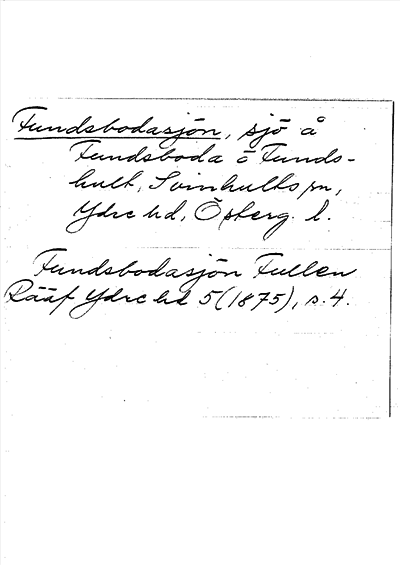 Fundsbodasjön, sjö å
Fundsboda o Funds-
hult, Svinhults sn,
Ydre hd, Österg. l.
Fundsbodasjön Fullen
Rääf Ydre hd 5(1875), s. 4.